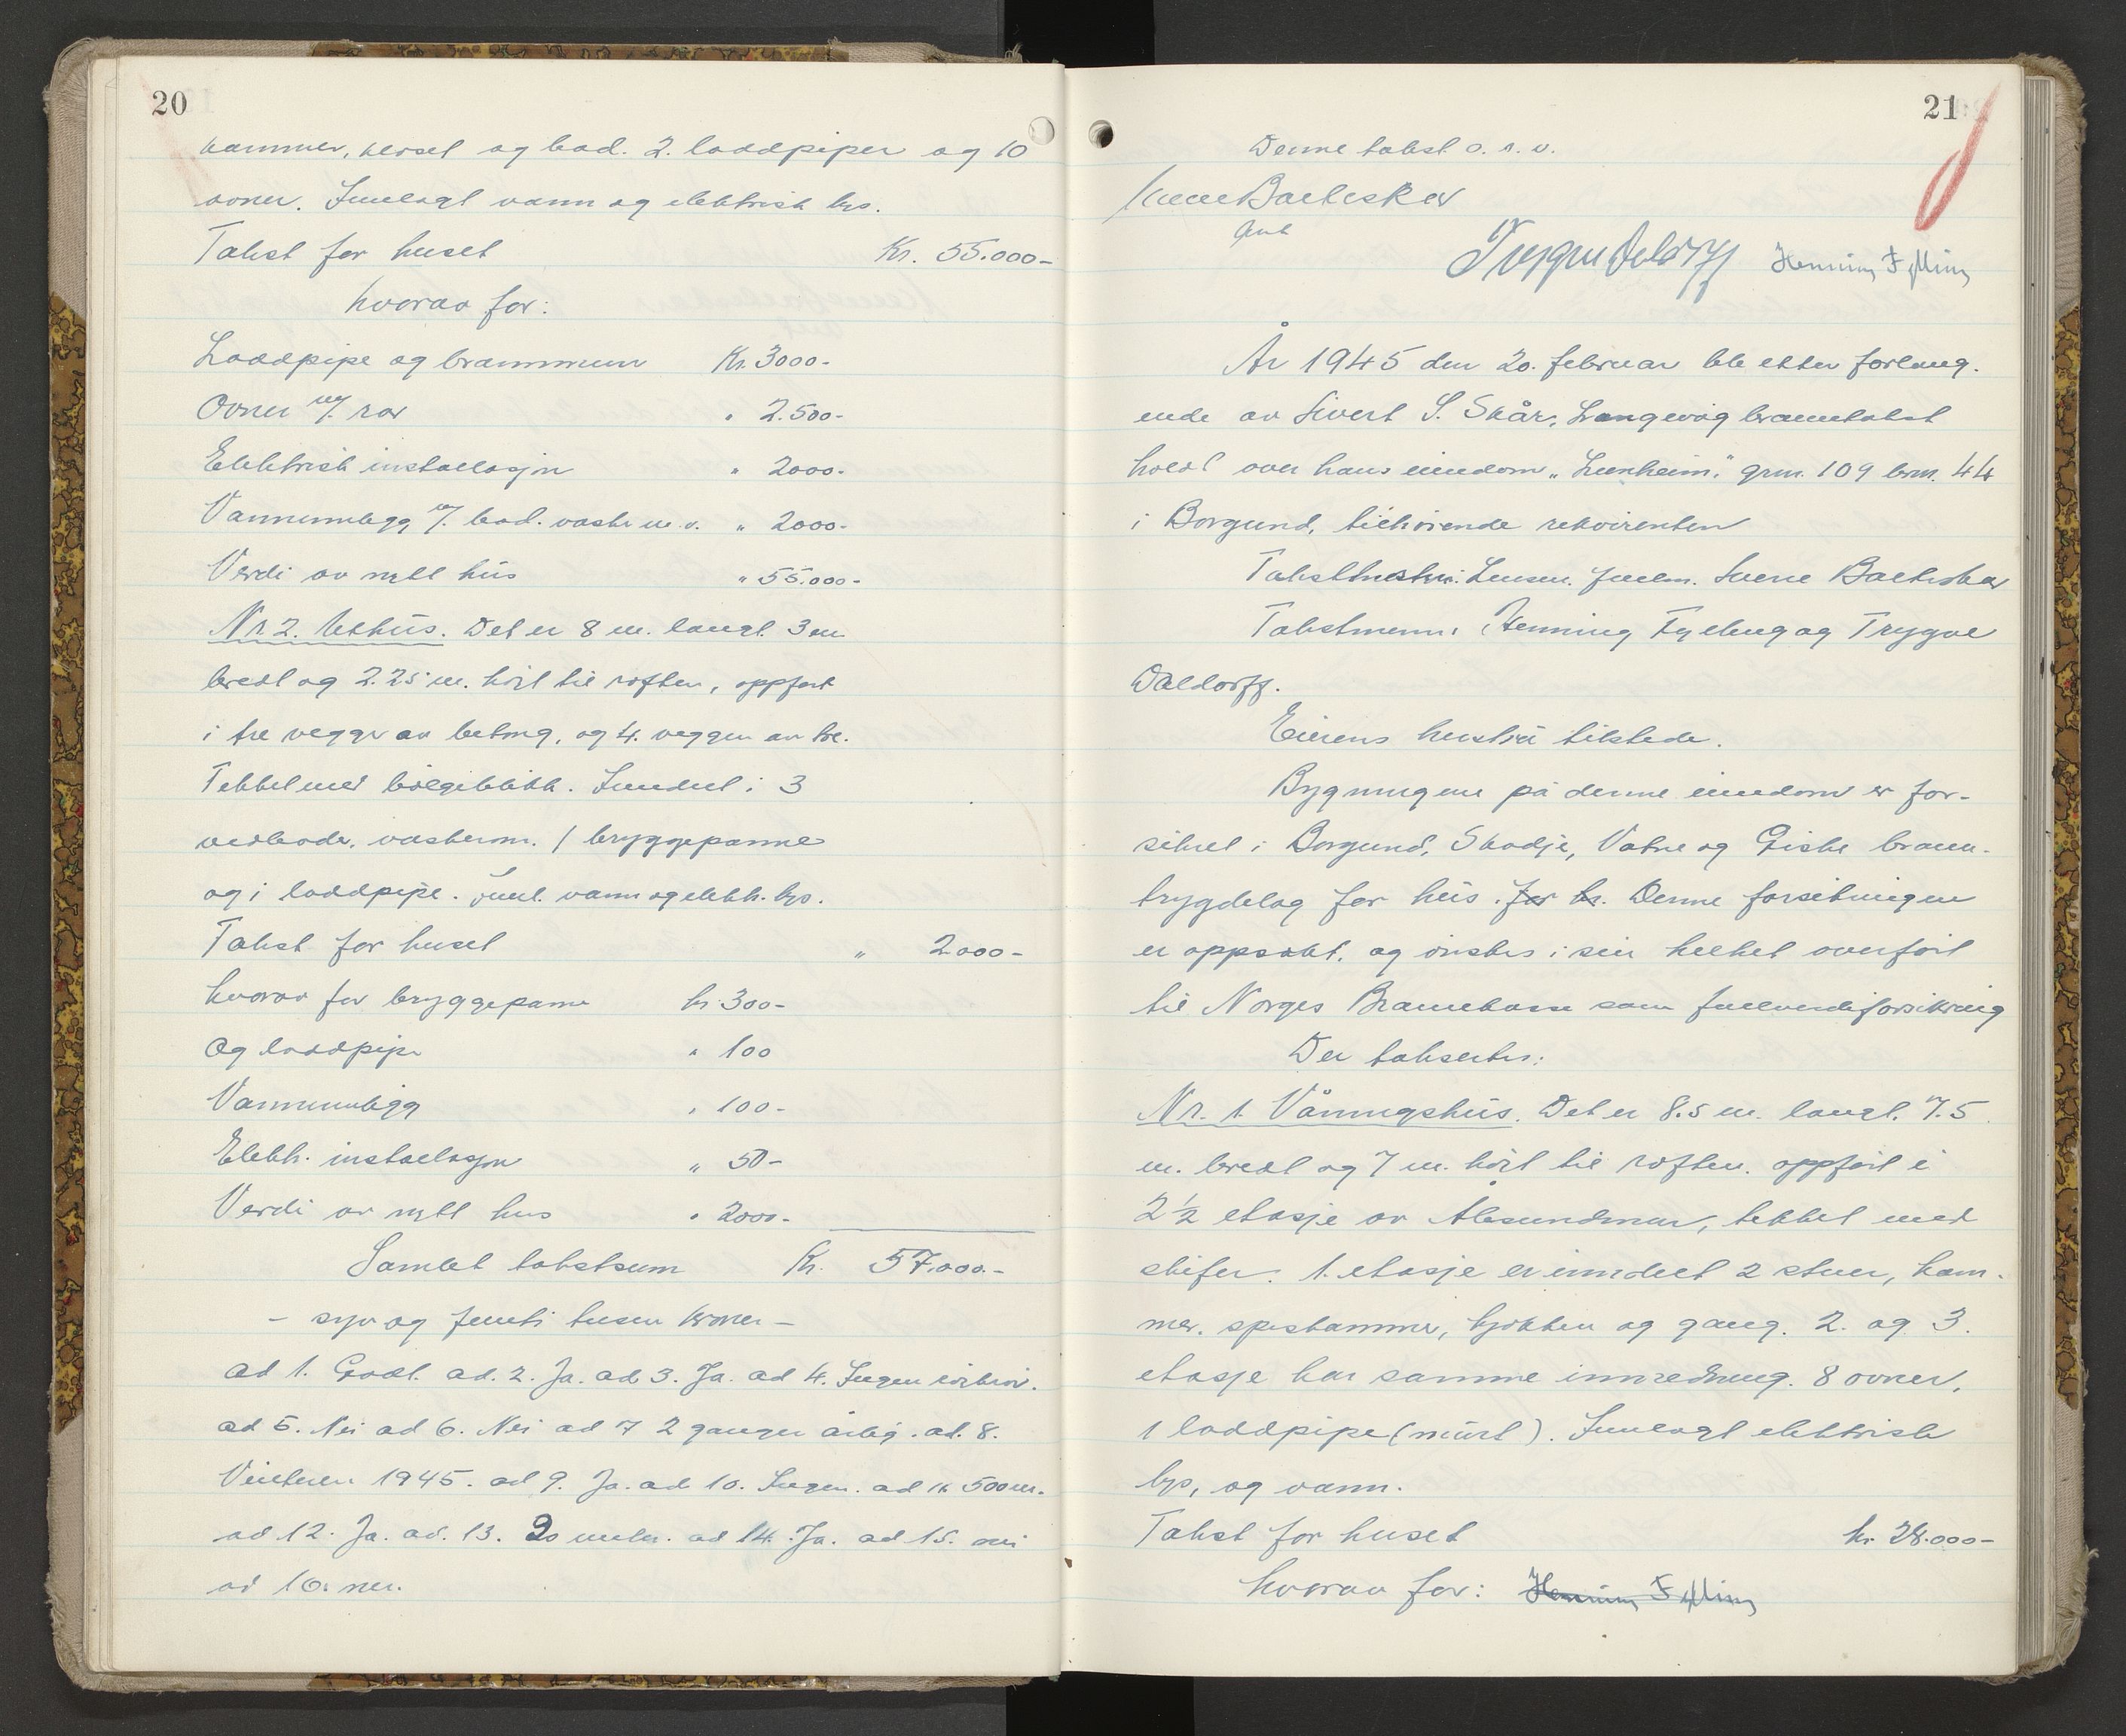 20
kammer, kloset og bad. 2. loddpiper og 10
ovner. Innlagt vann og elektrisk lys.
Takst for huset Kr. 55.000-
hvorav for:
Loddpipe og brannmur Kr. 3000-
Ovner m/. rør " 2.500-
Elektrisk installasjon " 2000-
Vanninnlegg m/. bad. vask m.v. " 2000-
Verdi av nytt hus " 55.000-
Nr 2. Uthus. Det er 8 m. langt. 3 m
bredt og 2.25 m. høit til røsten, oppført
i tre vegger av betong, og 4. veggen av tre.
Tekket med bølgeblikk. Inndelt i 3
vedboder, vaskerom. 1 bryggepanne
og i loddpipe. Innl. vann og elektr. lys.
Takst for huset " 2000-
hvorav for bryggepanne kr. 300-
og loddpipe " 100
Vanninnlegg " 100-
Elektr. installasjon " 50-
Verdi av nytt hus " 2000-
Samlet takstsum Kr. 57.000.-
- syv og femti tusen kroner -
ad 1. Godt. ad. 2. Ja. ad 3. Ja. ad 4. Ingen
ad 5. Nei ad 6. Nei ad 7 2 ganger årlig. ad. 8.
Vinteren 1945. ad 9. Ja. ad 10. Ingen. ad 11. 500 m.
ad 12. Ja. ad. 13. 20 ad 14. Ja. ad 15. nei
ad 16. nei.
21
Denne takst o. s. v.
Sverre Bachesker
Trygve Waldorff Henning Fylling
År 1945 den 20. februar ble etter forlang-
ende av Sivert S. Skår, Langevåg branntakst
holdt over hans eiendom "Lunheim," gnr. 109 bnr. 44
i Borgund, tilhørende rekvirenten
Takstbestyrer: Lensm. fullm. Sverre
Takstmenn: Henning Fylling og Trygve
Waldorff.
Eierens hustru tilstede.
Bygningene på denne eiendom er for-
sikret i Borgund, Skodje, Vatne og Giske brann-
trygdelag for hus. for kr. Denne forsikringen
er oppsakt, og ønskes i sin helhet overført
til Norges Brannkasse som fullverdiforsikring
Der takseres:
Nr. 1. Våningshus. Det er 8.5 m. langt. 7.5
m. bredt og 7 m. høit til røsten. oppført i
2 ½ etasje av Ålesundmur, tekket med
skifer. 1. etasje er inndelt 2 stuer, kam-
mer. spiskammer, kjøkken og gang. 2. og 3.
etasje har samme innredning. 8 ovner,
1 loddpipe (murt). Innlagt elektrisk
lys, og vann.
Takst for huset kr. 28.000-
hvorav for: Henning Fylling